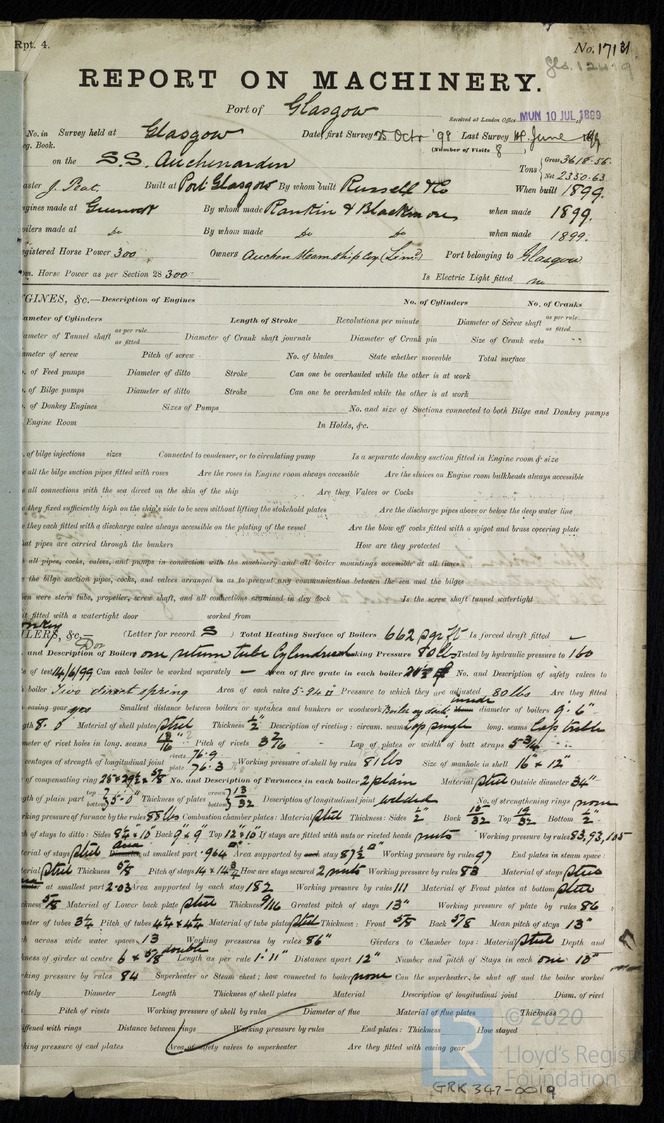 Rpt. 4.
No. 17131
REPORT ON MACHINERY.
Port of Glasgow
Received at London Office MON 10 JUL 1899
No. in Survey held at Glasgow Date, first Survey 25 Octr '98 Last Survey June
eg. Book. (Number of Visits 8
on the S.S. Auchenarden Tons { Gross 3618.56
Net 2330.63
aster J. Peat. Built at Port Glasgow By whom built Russell & Co When built 1899.
ngines made at Greenock By whom made Rankin & Blackmore when made 1899.
oilers made at do By whom made do do when made 1899.
gistered Horse Power 300 Owners Auchen Steam Ship Coy (Limd) Port belonging to Glasgow
om. Horse Power as per Section 28 300 Is Electric Light fitted no
GINES, &c.—Description of Engines No. of Cylinders No. of Cranks
ameter of Cylinders Length of Stroke Revolutions per minute Diameter of Screw shaft as per rule as fitted
ameter of Tunnel shaft as per rule as fitted Diameter of Crank shaft journals Diameter of Crank pin Size of Crank webs
ameter of screw Pitch of screw No. of blades State whether moveable Total surface
o. of Feed pumps Diameter of ditto Stroke Can one be overhauled while the other is at work
o. of Bilge pumps Diameter of ditto Stroke Can one be overhauled while the other is at work
o. of Donkey Engines Sizes of Pumps No. and size of Suctions connected to both Bilge and Donkey pumps
Engine Room In Holds, &c.
. of bilge injections sizes Connected to condenser, or to circulating pump Is a separate donkey suction fitted in Engine room & size
e all the bilge suction pipes fitted with roses Are the roses in Engine room always accessible Are the sluices on Engine room bulkheads always accessible
e all connections with the sea direct on the skin of the ship Are they Valves or Cocks
e they fixed sufficiently high on the ship's side to be seen without lifting the stokehold plates Are the discharge pipes above or below the deep water line
e they each fitted with a discharge valve always accessible on the plating of the vessel Are the blow off cocks fitted with a spigot and brass covering plate
at pipes are carried through the bunkers How are they protected
all pipes, cocks, valves, and pumps in connection with the machinery and all boiler mountings accessible at all times
e the bilge suction pipes, cocks, and valves arranged so as to prevent any communication between the sea and the bilges
en were stern tube, propeller, screw shaft, and all connections examined in dry dock Is the screw shaft tunnel watertight
it fitted with a watertight door worked from
ILERS, &c.— (Letter for record S) Total Heating Surface of Boilers 662 sqr ft Is forced draft fitted –
. and Description of Boilers one return tube Cylindrical king Pressure 80 lbs Tested by hydraulic pressure to 160
e of test 14/6/99 Can each boiler be worked separately – Area of fire grate in each boiler No. and Description of safety valves to
h boiler Two direct spring Area of each valve 5.94 Pressure to which they are adjusted 80 lbs Are they fitted
h easing gear yes Smallest distance between boilers or uptakes and bunkers or woodwork Boiler on deck inside diameter of boilers 9'-6"
gth 8'-0" Material of shell plates Steel Thickness 1/2" Description of riveting: circum. seams Lap single long. seams Lap treble
meter of rivet holes in long. seams 13/16" Pitch of rivets 3 7/16 Lap of plates or width of butt straps 5 3/4
centages of strength of longitudinal joint rivets 76.9 plate 76.3 Working pressure of shell by rules 81 lbs Size of manhole in shell 16" x 12"
e of compensating ring 28 x 29 1/2 x 5/8 No. and Description of Furnaces in each boiler 2 plain Material Steel Outside diameter 34"
gth of plain part top bottom 5'-0" Thickness of plates crown bottom 13/32 Description of longitudinal joint welded No. of strengthening rings none
rking pressure of furnace by the rules 88 lbs Combustion chamber plates: Material Steel Thickness: Sides 1/2" Back 15/32 Top 15/32 Bottom 1/2"
ch of stays to ditto: Sides 8 1/2 x 10 Back 9" x 9" Top 12 x 10" If stays are fitted with nuts or riveted heads nuts Working pressure by rules 83, 93, 105
terial of stays Steel area at smallest part .964 Area supported by each stay 87 1/2 Working pressure by rules 97 End plates in steam space:
terial Steel Thickness 5/8 Pitch of stays 14 x 14 3/4 How are stays secured 2 nuts Working pressure by rules 83 Material of stays Steel
at smallest part 2.03 Area supported by each stay 182 Working pressure by rules 111 Material of Front plates at bottom Steel
ckness 5/8 Material of Lower back plate Steel Thickness 9/16 Greatest pitch of stays 13" Working pressure of plate by rules 86
meter of tubes 3 1/4 Pitch of tubes 4 1/2 x 4 1/2 Material of tube plates Steel Thickness: Front 5/8 Back 5/8 Mean pitch of stays 13"
ch across wide water spaces 13 Working pressures by rules 86" Girders to Chamber tops: Material Steel Depth and
ckness of girder at centre 6 x 5/8 double Length as per rule 1'-11" Distance apart 12" Number and pitch of Stays in each one 10"
rking pressure by rules 84 Superheater or Steam chest; how connected to boiler none Can the superheater be shut off and the boiler worked
rately Diameter Length Thickness of shell plates Material Description of longitudinal joint Diam. of rivet
Pitch of rivets Working pressure of shell by rules Diameter of flue Material of flue plates Thickness
iffened with rings Distance between rings Working pressure by rules End plates: Thickness How stayed
king pressure of end plates Area of safety valves to superheater Are they fitted with easing gear
LR
© 2020
Lloyd's Register
Foundation
GRK 347-0019